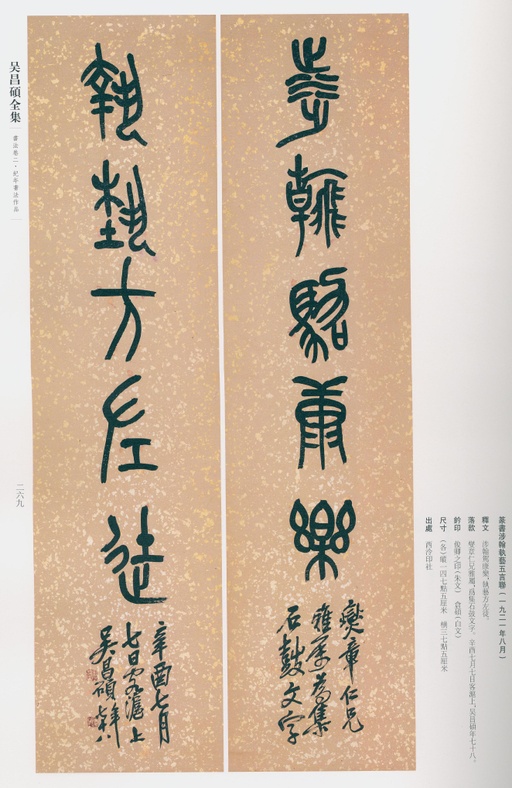 篆書涉翰執藝五言聯(一九二一年八月)
釋文 涉翰駱康樂,執藝方左徒。
落款 燮章仁兄雅屬,爲集石鼓文字。辛酉七月七日客滬上,吴昌碩年七十八。
鈐印 俊卿之印(朱文) 倉碩(白文)
尺寸 (各)縱一四七點五厘米 橫三七點五厘米
出處 西泠印社
涉翰駱康樂
燮章仁兄
雅屬爲集
石鼓文字
執藝方左徒
辛酉七月
七日客滬上
吴昌碩年七十八
吴昌碩全集
書法卷二·紀年書法作品
二六九